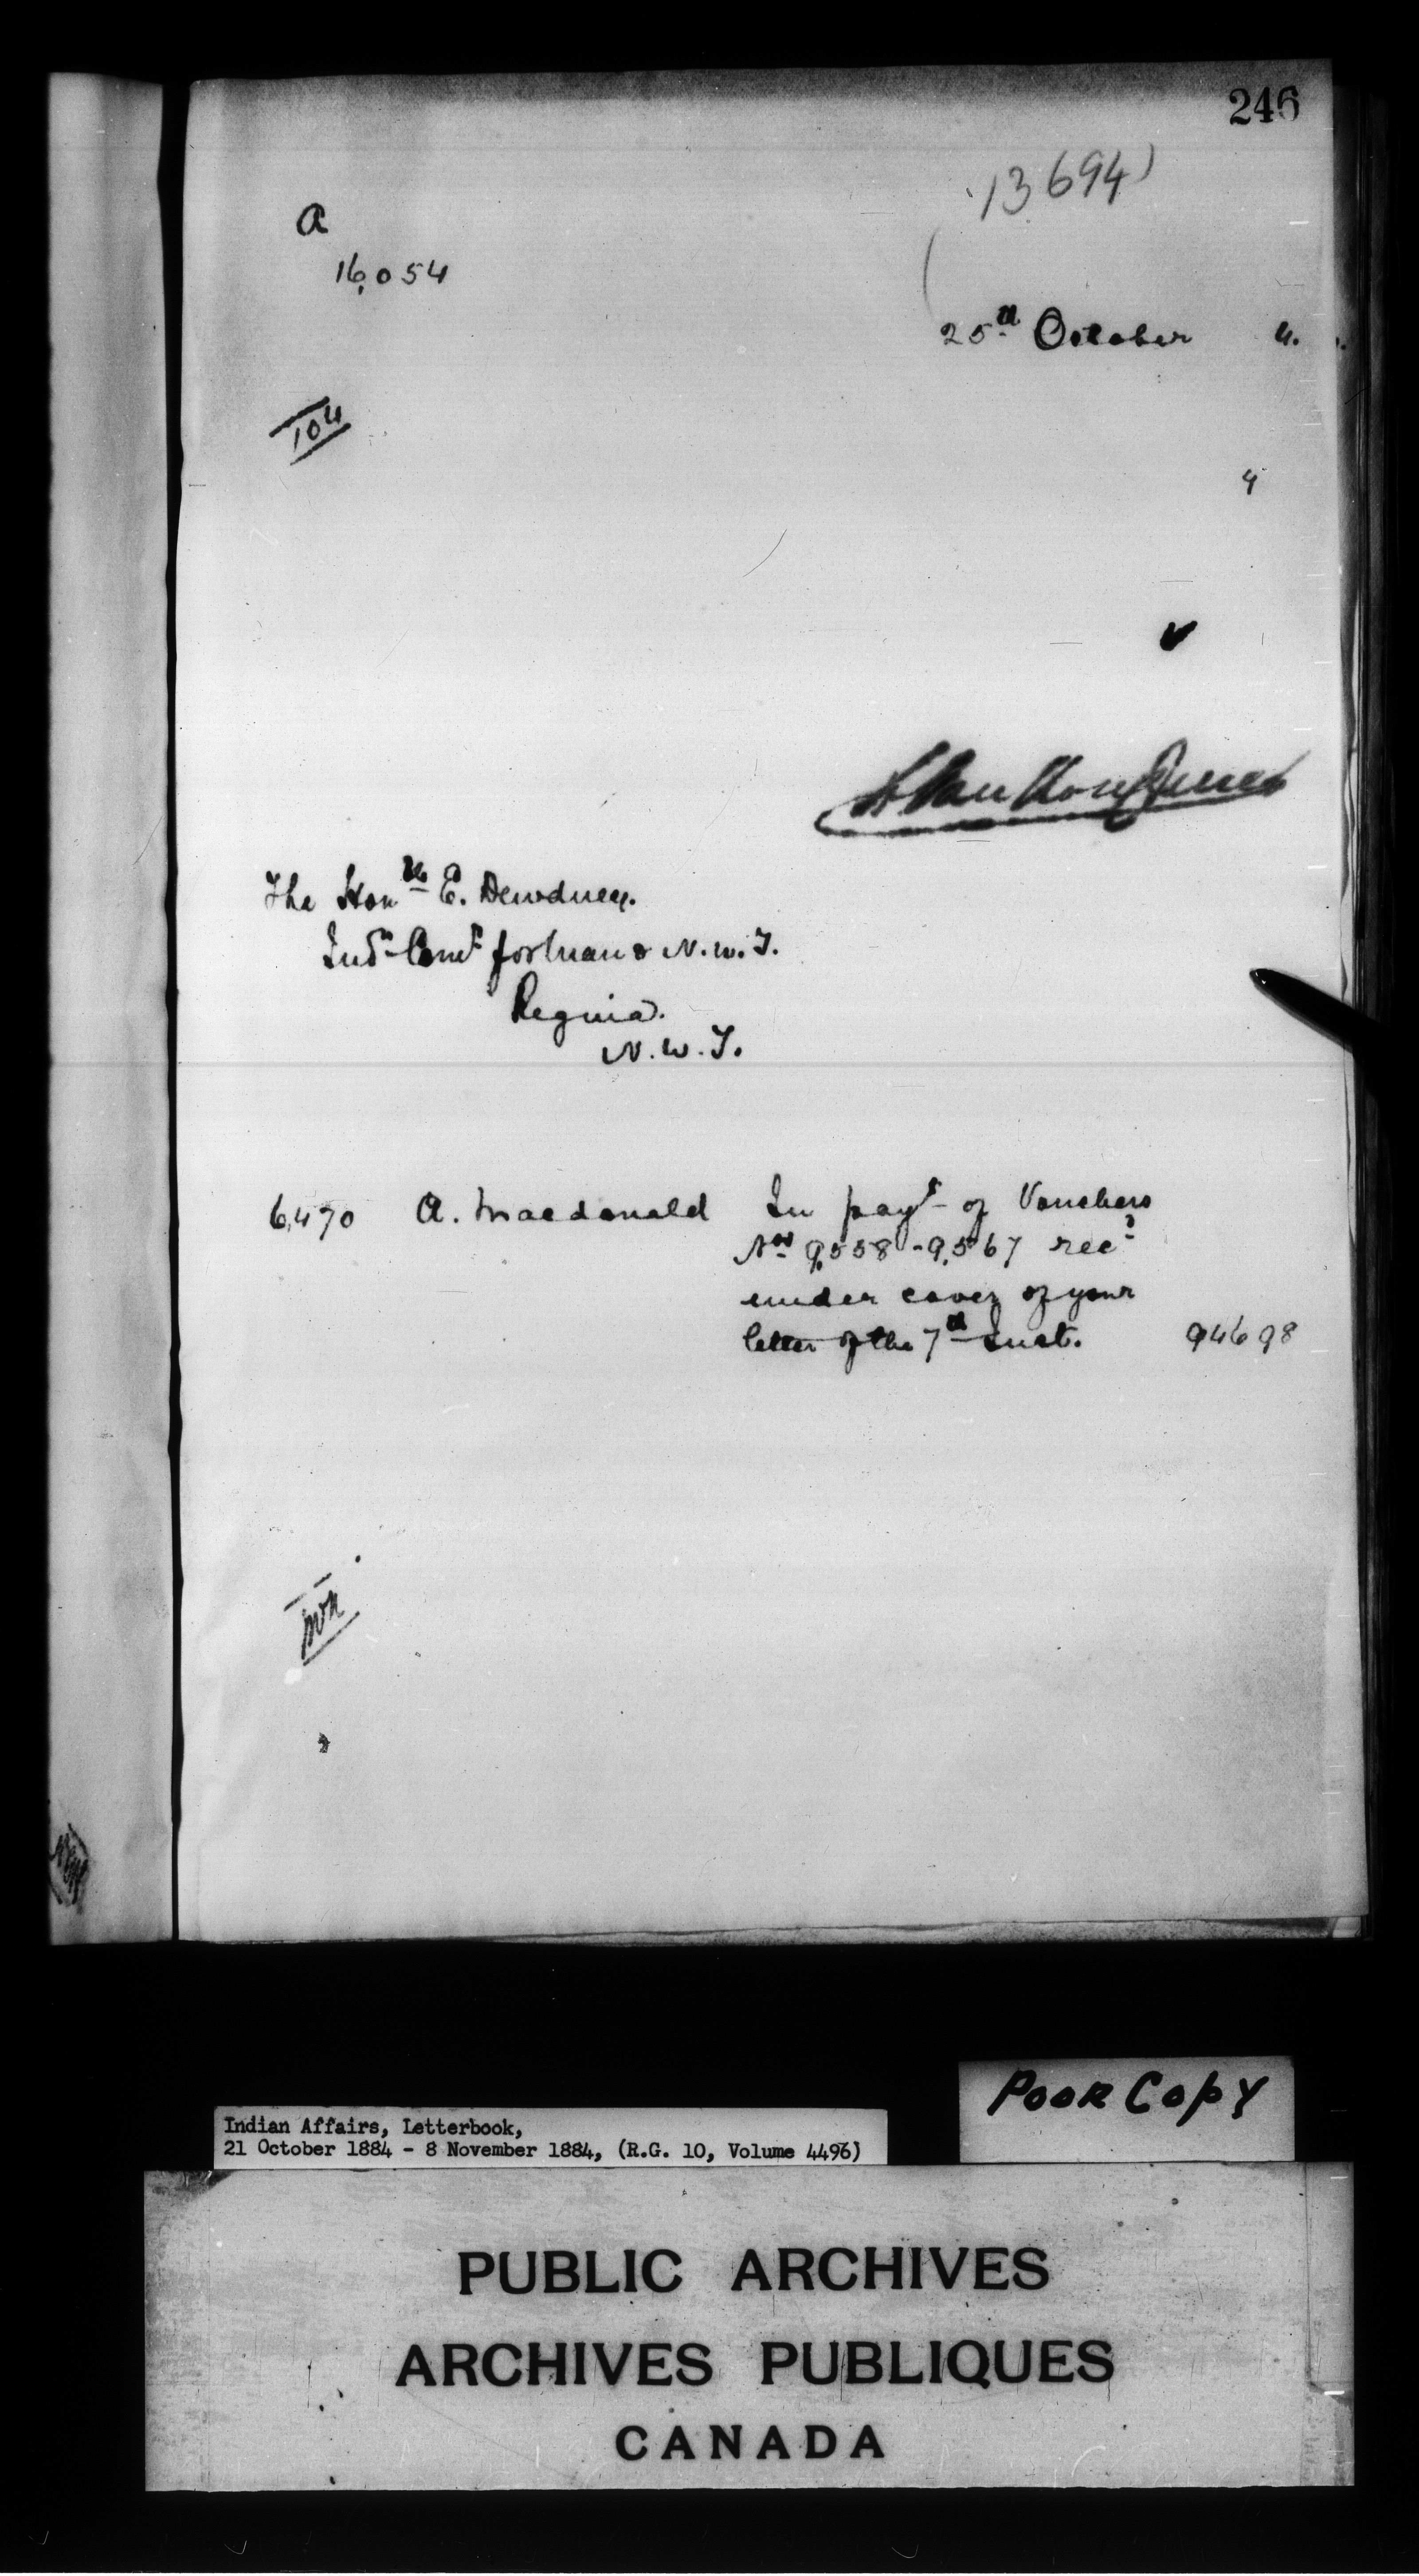 246
13694)
A
16,054
25th October 4.
104
4
L. VanKoughnet
The Honble E. Dewdney.
Indn Comr for Man & N.W.T.
Regina.
N.W.T.
6,470 A. Macdonald In payt of Vouchers
Nos 9,558 - 9,567 recd
under cover of your
letter of the 7th Inst. 94698
Poor Copy
Indian Affairs, Letterbook,
21 October 1884 - 8 November 1884, (R.G. 10, Volume 4496)
PUBLIC ARCHIVES
ARCHIVES PUBLIQUES
CANADA